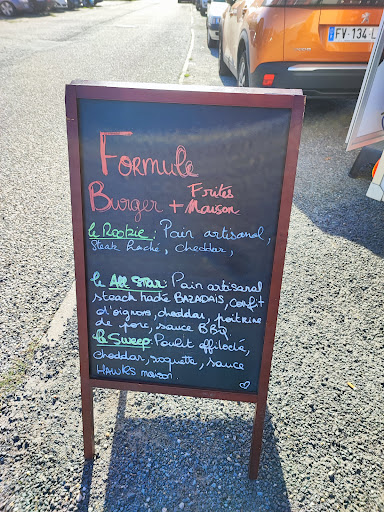 FV-134-L
Formule
Burger + Frites
Maison
le Rookie : Pain artisanal,
Steak haché, cheddar,
le All Star : Pain artisanal
steack haché BAZADAIS, confit
d'oignons, cheddar, poitrine
de porc, sauce BBQ
la Sweep : Poulit effiloché,
cheddar, roquette, sauce
HAWKS maison.